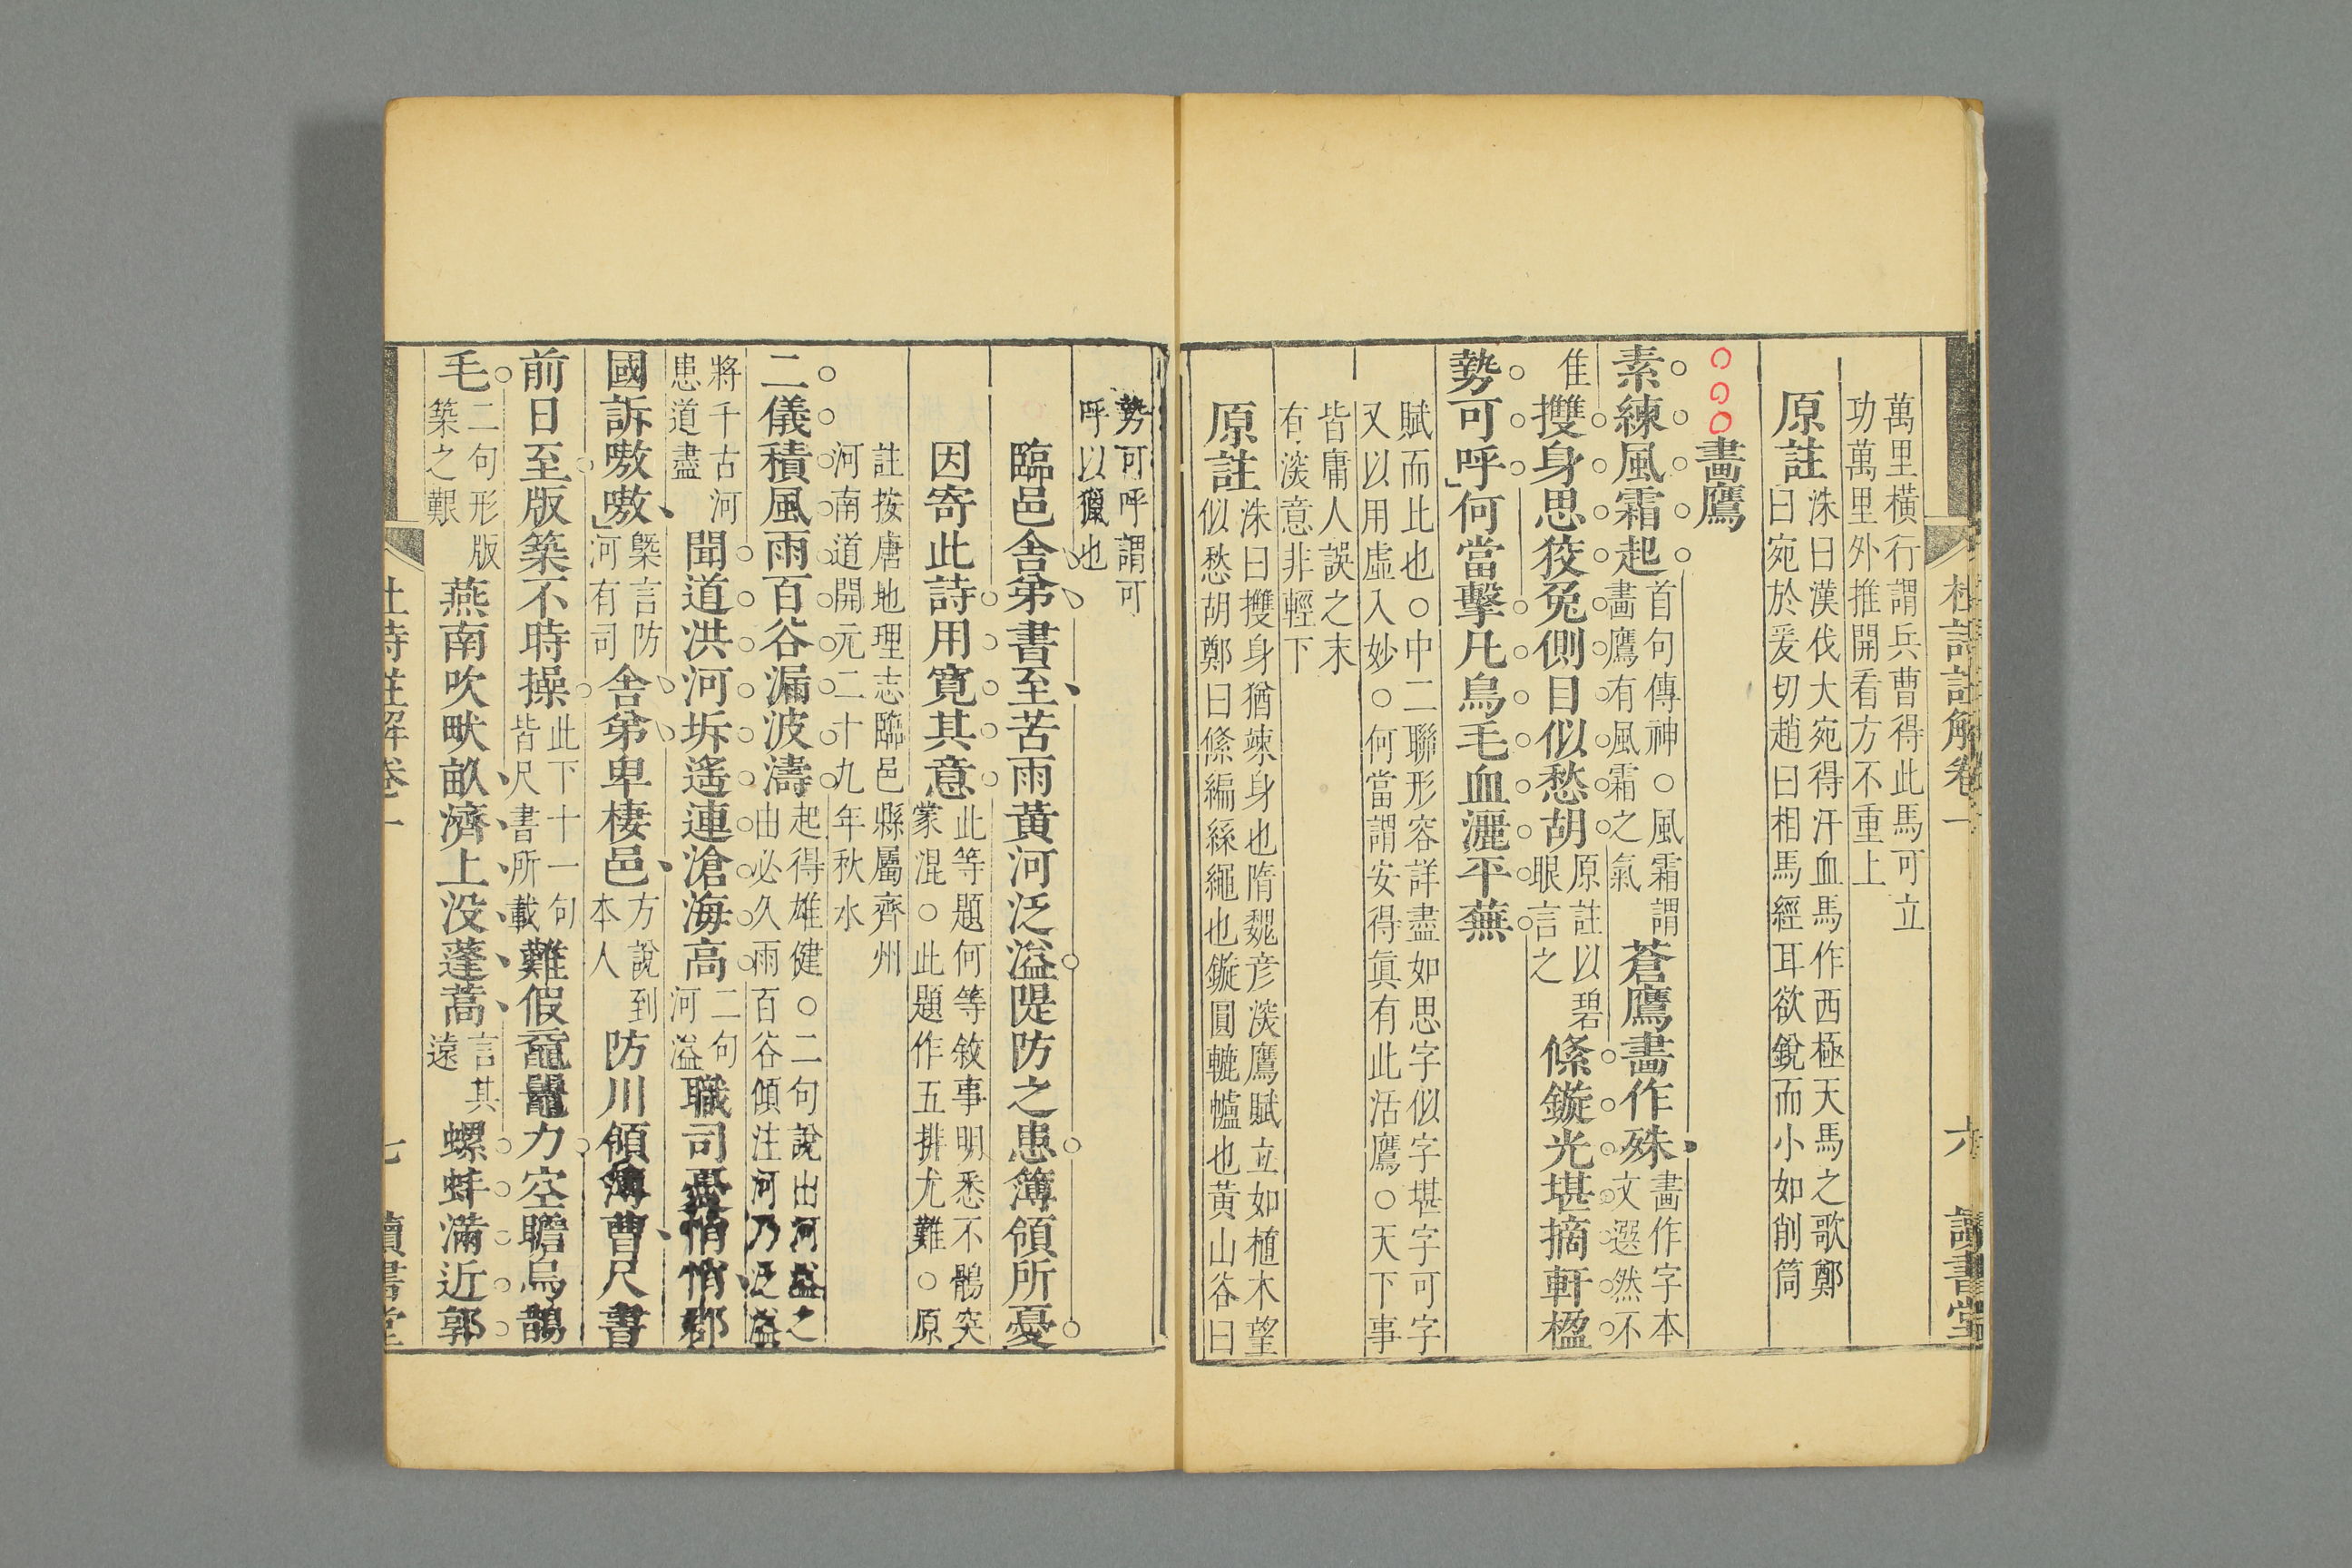 杜詩註解卷一
六
讀書堂
萬里橫行謂兵曹得此馬可立
功萬里外推開看方不重上
原註
洙曰漢伐大宛得汗血馬作西極天馬之歌鄭
曰宛於爰切趙曰相馬經耳欲銳而小如削筒
畫鷹
素練風霜起
首句傳神○風霜謂
畫鷹有風霜之氣
蒼鷹畫作殊
畫作字本
文選然不
隹
㩳身思狡兔側目似愁胡
原註以碧
眼言之
絛鏇光堪摘軒楹
勢可呼何當擊凡鳥毛血灑平蕪
賦而比也○中二聯形容詳盡如思字似字堪字可字
又以用虛入妙○何當謂安得眞有此活鷹○天下事
皆庸人誤之末
有深意非輕下
原註
洙曰㩳身猶竦身也隋魏彦深鷹賦立如植木望
似愁胡鄭曰絛編絲繩也鏇圓轆轤也黃山谷曰
勢可呼謂可
呼以獵也
臨邑舍弟書至苦雨黃河泛溢隄防之患簿領所憂
因寄此詩用寛其意
此等題何等敘事明悉不鶻突
蒙混○此題作五排尤難○原
註按唐地理志臨邑縣屬齊州
河南道開元二十九年秋水
二儀積風雨百谷漏波濤
起得雄健○二句說出河溢之
由必久雨百谷傾注河乃泛溢
將千古河
患道盡
聞道洪河坼遙連滄海高
二句
河溢
職司憂悄悄郡
國訴嗷嗷
槩言防
河有司
舍弟卑棲邑
方說到
本人
防川領簿曹尺書
前日至版築不時操
此下十一句
皆尺書所載
難假黿鼉力空瞻烏鵲
毛
二句形版
築之艱
燕南吹畎畝濟上没蓬蒿
言其
遠
螺蚌滿近郭
杜詩註解卷一
七
讀書堂